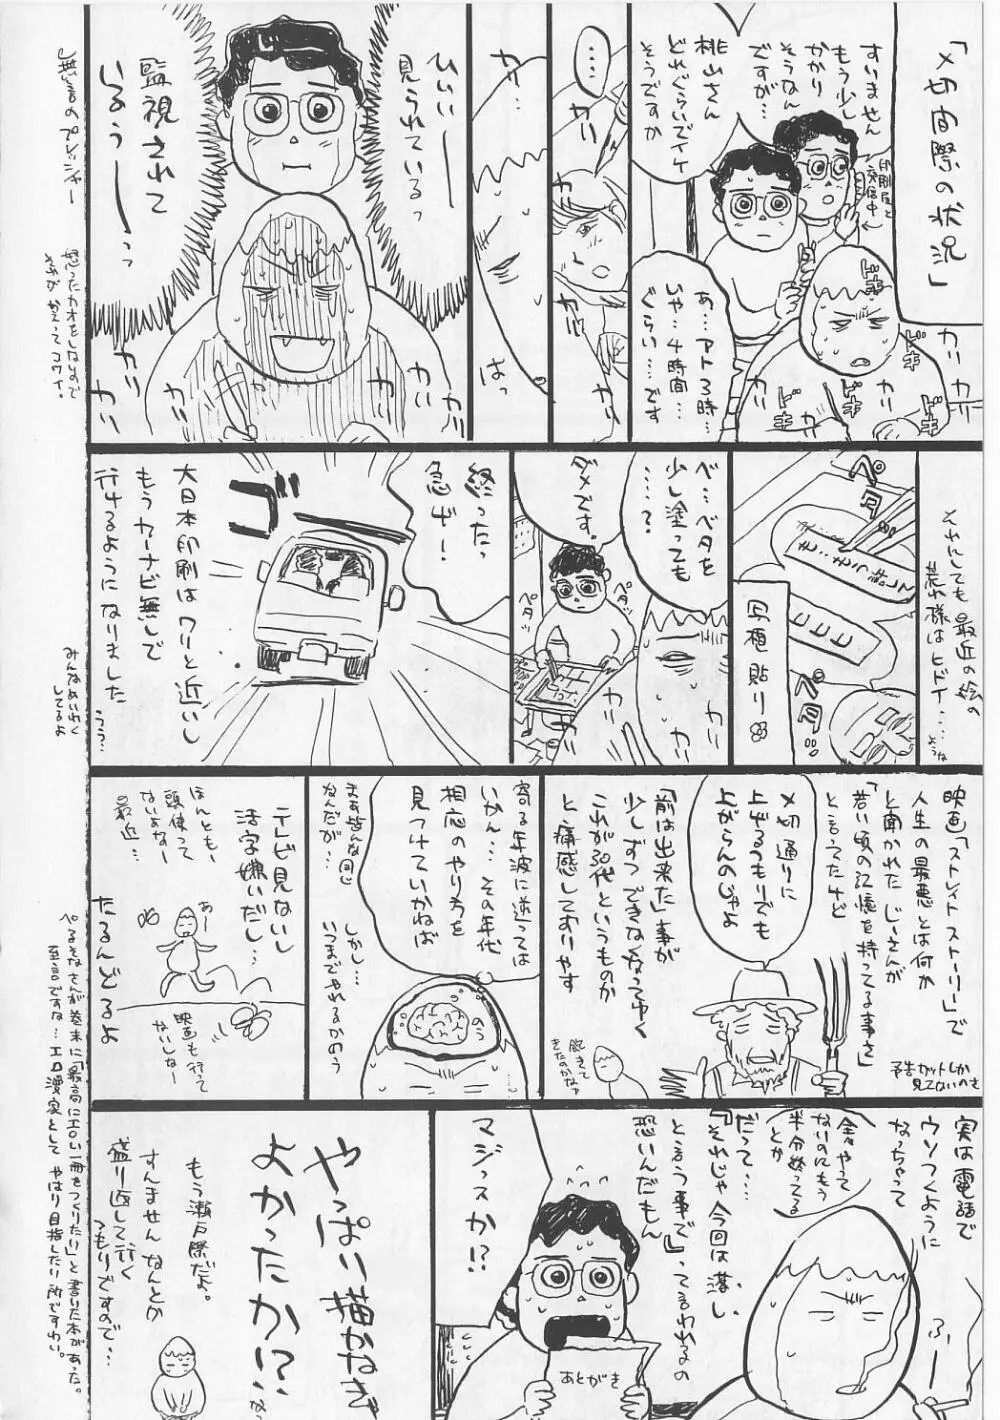 「〆切間際の状況」
すいません
もう少し
かかり
そうなん
ですが…
印刷屋と
発信中
桃山さん
どれぐらいでイケ
そうですか
ドキ
ドキ
ドキ
ドキ
あ…アト3時…
いや…4時間…
ぐらい……です
カリ
カリ
……
カリ
カリ
カリ
カリ…
は
ひぃぃー
見られているっ
監視されて
いるぅーっ
カリ
カリ
カリ
カリ
無言のプレッシャー
怒ったカオをしないので
それがかえってコワイ。
それにしても最近の絵の
荒れ様はヒドイ…
ペタ
写植貼り
ペタ
ベ…ベタを
少し塗っても
……？
ダメです。
ペタッ
ペタッ
カリ
カリ
終ったっ
急げ！
ゴ
大日本印刷はワリと近いし
もうカーナビ無しで
行けるようになりました
うう…
みんなめいわく
してるよ
映画「ストレイトストーリー」で
人生の最悪とは何か
と聞かれたじーさんが
「若い頃の記憶を持ってる事さ」
と言ってたけど
予告カットしか
見てないのさ
〆切通りに
上げるつもりでも
上がらんのじゃよ
「前は出来た」事が
少しずつできなくなってゆく
これが30代というものか
と、痛感しております
飽きて
きたのかなァ
寄る年波に逆らっては
いかん…その年代
相応のやり方を
見つけていかねば
のう
まぁ皆んな同じ
なんだが…
しかし…
いつまでやれるかのう
テレビ見ないし
活字嫌いだし…
ほんともー
頭使って
ないよなー
最近…
あー
映画も行って
ないしなー
たるんどるよ
実は電話で
ウソつくように
なっちゃって
全々やって
ないのにもう
半分終ってる
とか
ふーー
だって…
『それじゃ今回は落し
と言う事で』って言われるの
恐いんだもん
マジッスか!?
あとがき
やっぱい描かなき
よかったかい？
なっ
もう瀬戸際だよ。
すんませんなんとか
盛り返して行く
つもりですので…
ぺるそなさんが巻末に「最高にエロい一冊をつくりたい」と書いた本があった。
至言ですな…エロ漫家としてやはり目指したい所ですわい。